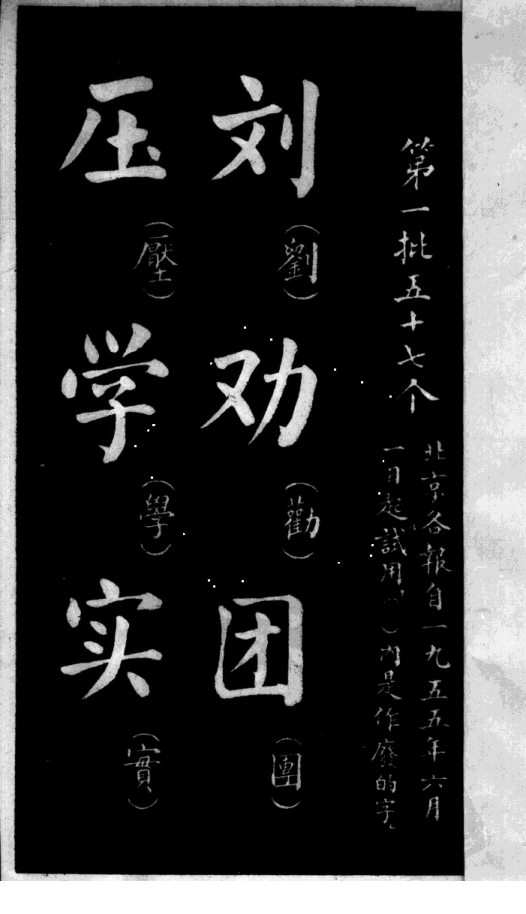 第一批五十七个
北京各報自一九五五年六月
一日起試用（）內是作廢的字。
刘
（劉）
劝
（勸）
团
（團）
压
（壓）
学
（學）
实
（實）